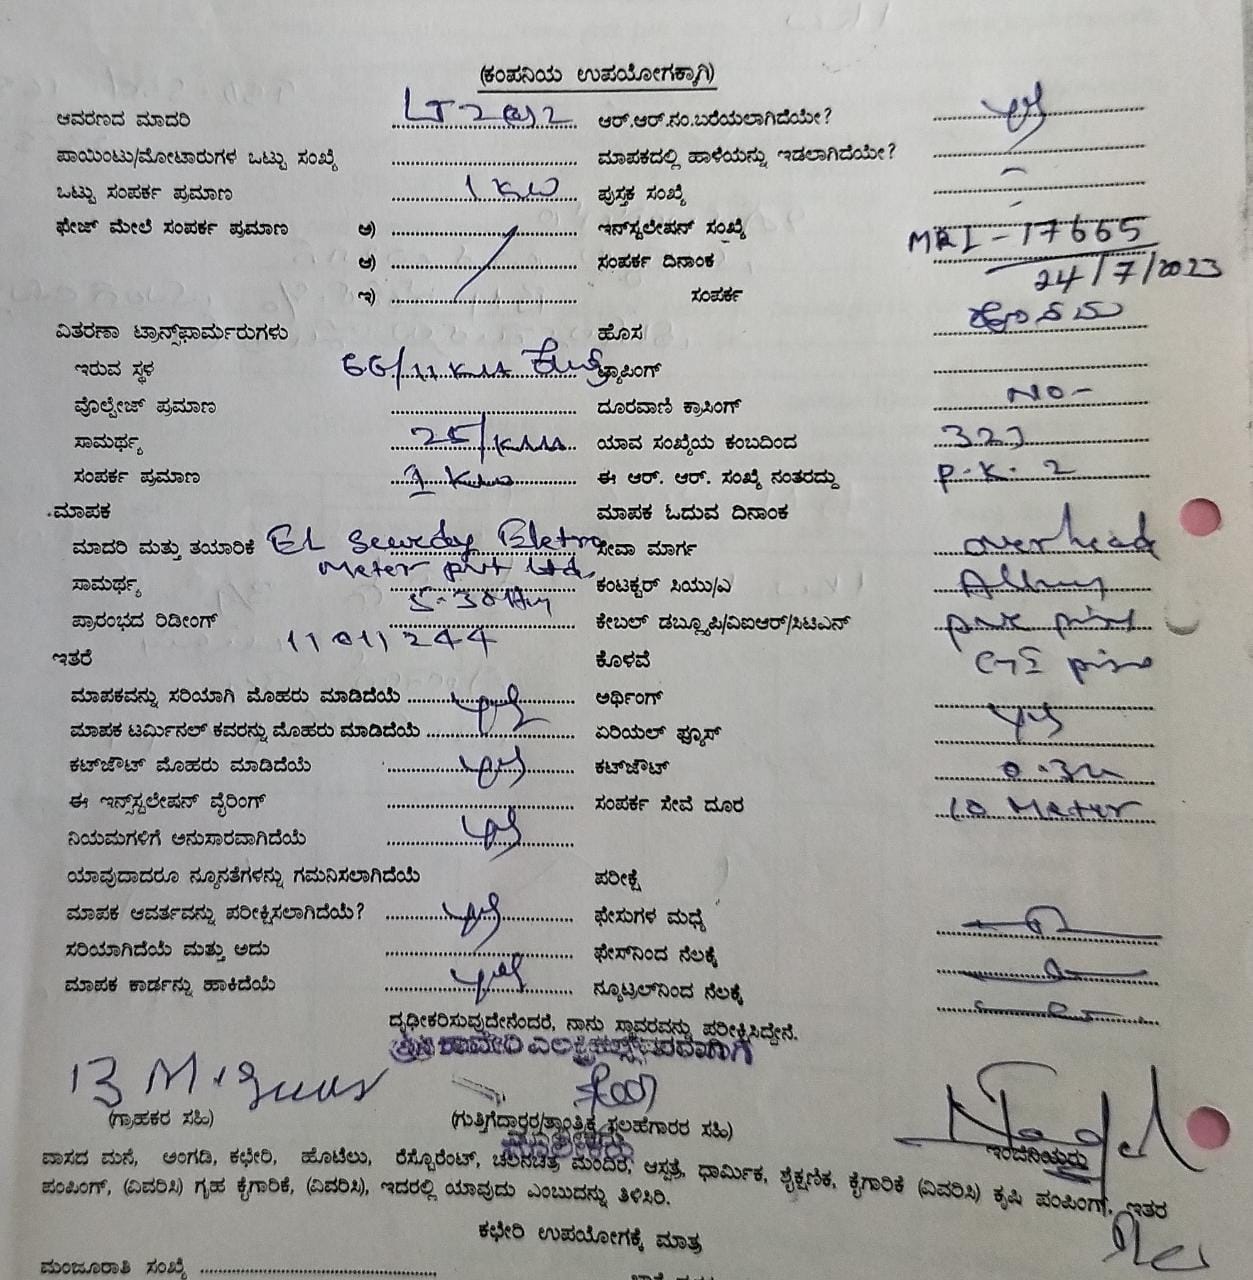 (ಕಂಪನಿಯ ಉಪಯೋಗಕ್ಕಾಗಿ)
ಆವರಣದ ಮಾದರಿ LT 2(a)2 ಆರ್.ಆರ್.ನಂ.ಬರೆಯಲಾಗಿದೆಯೇ? yes
ಪಾಯಿಂಟು/ಮೋಟಾರುಗಳ ಒಟ್ಟು ಸಂಖ್ಯೆ ಮಾಪಕದಲ್ಲಿ ಹಾಳೆಯನ್ನು ಇಡಲಾಗಿದೆಯೇ?
ಒಟ್ಟು ಸಂಪರ್ಕ ಪ್ರಮಾಣ 1 KW ಪುಸ್ತಕ ಸಂಖ್ಯೆ -
ಫೇಜ್ ಮೇಲೆ ಸಂಪರ್ಕ ಪ್ರಮಾಣ ಅ) ಇನ್‌ಸ್ಟಲೇಷನ್ ಸಂಖ್ಯೆ MRI-17665
ಆ) ಸಂಪರ್ಕ ದಿನಾಂಕ 24/7/2023
ಇ) ಸಂಪರ್ಕ
ವಿತರಣಾ ಟ್ರಾನ್ಸ್‌ಫಾರ್ಮರುಗಳು ಹೊಸ
ಇರುವ ಸ್ಥಳ 66/11 KVA ಟ್ಯಾಪಿಂಗ್
ವೊಲ್ಟೇಜ್ ಪ್ರಮಾಣ ದೂರವಾಣಿ ಕ್ರಾಸಿಂಗ್ NO-
ಸಾಮರ್ಥ್ಯ 25/KVA ಯಾವ ಸಂಖ್ಯೆಯ ಕಂಬದಿಂದ
ಸಂಪರ್ಕ ಪ್ರಮಾಣ 1 KW ಈ ಆರ್. ಆರ್. ಸಂಖ್ಯೆ ನಂತರದ್ದು P.K. 2
ಮಾಪಕ ಮಾಪಕ ಓದುವ ದಿನಾಂಕ
ಮಾದರಿ ಮತ್ತು ತಯಾರಿಕೆ EL Sewedy Eletro ಸೇವಾ ಮಾರ್ಗ overhead
Meter pvt Ltd,
ಸಾಮರ್ಥ್ಯ 5-30 ಕಂಟಕ್ಟರ್ ಸಿಯು/ಎ
ಪ್ರಾರಂಭದ ರಿಡೀಂಗ್ 11011244 ಕೇಬಲ್ ಡಬ್ಲ್ಯೂಪಿ/ವಿಐಆರ್/ಸಿಟಿಎನ್
ಇತರೆ ಕೊಳವೆ
ಮಾಪಕವನ್ನು ಸರಿಯಾಗಿ ಮೊಹರು ಮಾಡಿದೆಯೆ yes ಅರ್ಥಿಂಗ್
ಮಾಪಕ ಟರ್ಮಿನಲ್ ಕವರನ್ನು ಮೊಹರು ಮಾಡಿದೆಯೆ ಏರಿಯಲ್ ಫ್ಯೂಸ್ yes
ಕಟ್‌ಔಟ್ ಮೊಹರು ಮಾಡಿದೆಯೆ yes ಕಟ್‌ಔಟ್
ಈ ಇನ್ಸ್‌ಸ್ಟಲೇಷನ್ ವೈರಿಂಗ್ ಸಂಪರ್ಕ ಸೇವೆ ದೂರ 10 Meter
ನಿಯಮಗಳಿಗೆ ಅನುಸಾರವಾಗಿದೆಯೆ yes
ಯಾವುದಾದರೂ ನ್ಯೂನತೆಗಳನ್ನು ಗಮನಿಸಲಾಗಿದೆಯೆ ಪರೀಕ್ಷೆ
ಮಾಪಕ ಆವರ್ತವನ್ನು ಪರೀಕ್ಷಿಸಲಾಗಿದೆಯೆ? yes ಫೇಸುಗಳ ಮಧ್ಯೆ
ಸರಿಯಾಗಿದೆಯೆ ಮತ್ತು ಅದು ಫೇಸ್‌ನಿಂದ ನೆಲಕ್ಕೆ
ಮಾಪಕ ಕಾರ್ಡನ್ನು ಹಾಕಿದೆಯೆ yes ನ್ಯೂಟ್ರಲ್‌ನಿಂದ ನೆಲಕ್ಕೆ
ದೃಢೀಕರಿಸುವುದೇನೆಂದರೆ, ನಾನು ಸ್ಥಾವರವನ್ನು ಪರೀಕ್ಷಿಸಿದ್ದೇನೆ.
(ಗ್ರಾಹಕರ ಸಹಿ) (ಗುತ್ತಿಗೆದಾರರ/ತಾಂತ್ರಿಕ ಸಲಹೆಗಾರರ ಸಹಿ) ಇಂಜಿನಿಯರು
ಮಾಲೀಕರು
ವಾಸದ ಮನೆ, ಅಂಗಡಿ, ಕಛೇರಿ, ಹೊಟೆಲು, ರೆಸ್ಟೊರೆಂಟ್, ಚಲನಚಿತ್ರ ಮಂದಿರ, ಆಸ್ಪತ್ರೆ, ಧಾರ್ಮಿಕ, ಶೈಕ್ಷಣಿಕ, ಕೈಗಾರಿಕೆ (ವಿವರಿಸಿ) ಕೃಷಿ ಪಂಪಿಂಗ್, ಇತರ
ಪಂಪಿಂಗ್, (ವಿವರಿಸಿ) ಗೃಹ ಕೈಗಾರಿಕೆ, (ವಿವರಿಸಿ), ಇದರಲ್ಲಿ ಯಾವುದು ಎಂಬುದನ್ನು ತಿಳಿಸಿರಿ.
ಕಛೇರಿ ಉಪಯೋಗಕ್ಕೆ ಮಾತ್ರ
ಮಂಜೂರಾತಿ ಸಂಖ್ಯೆ